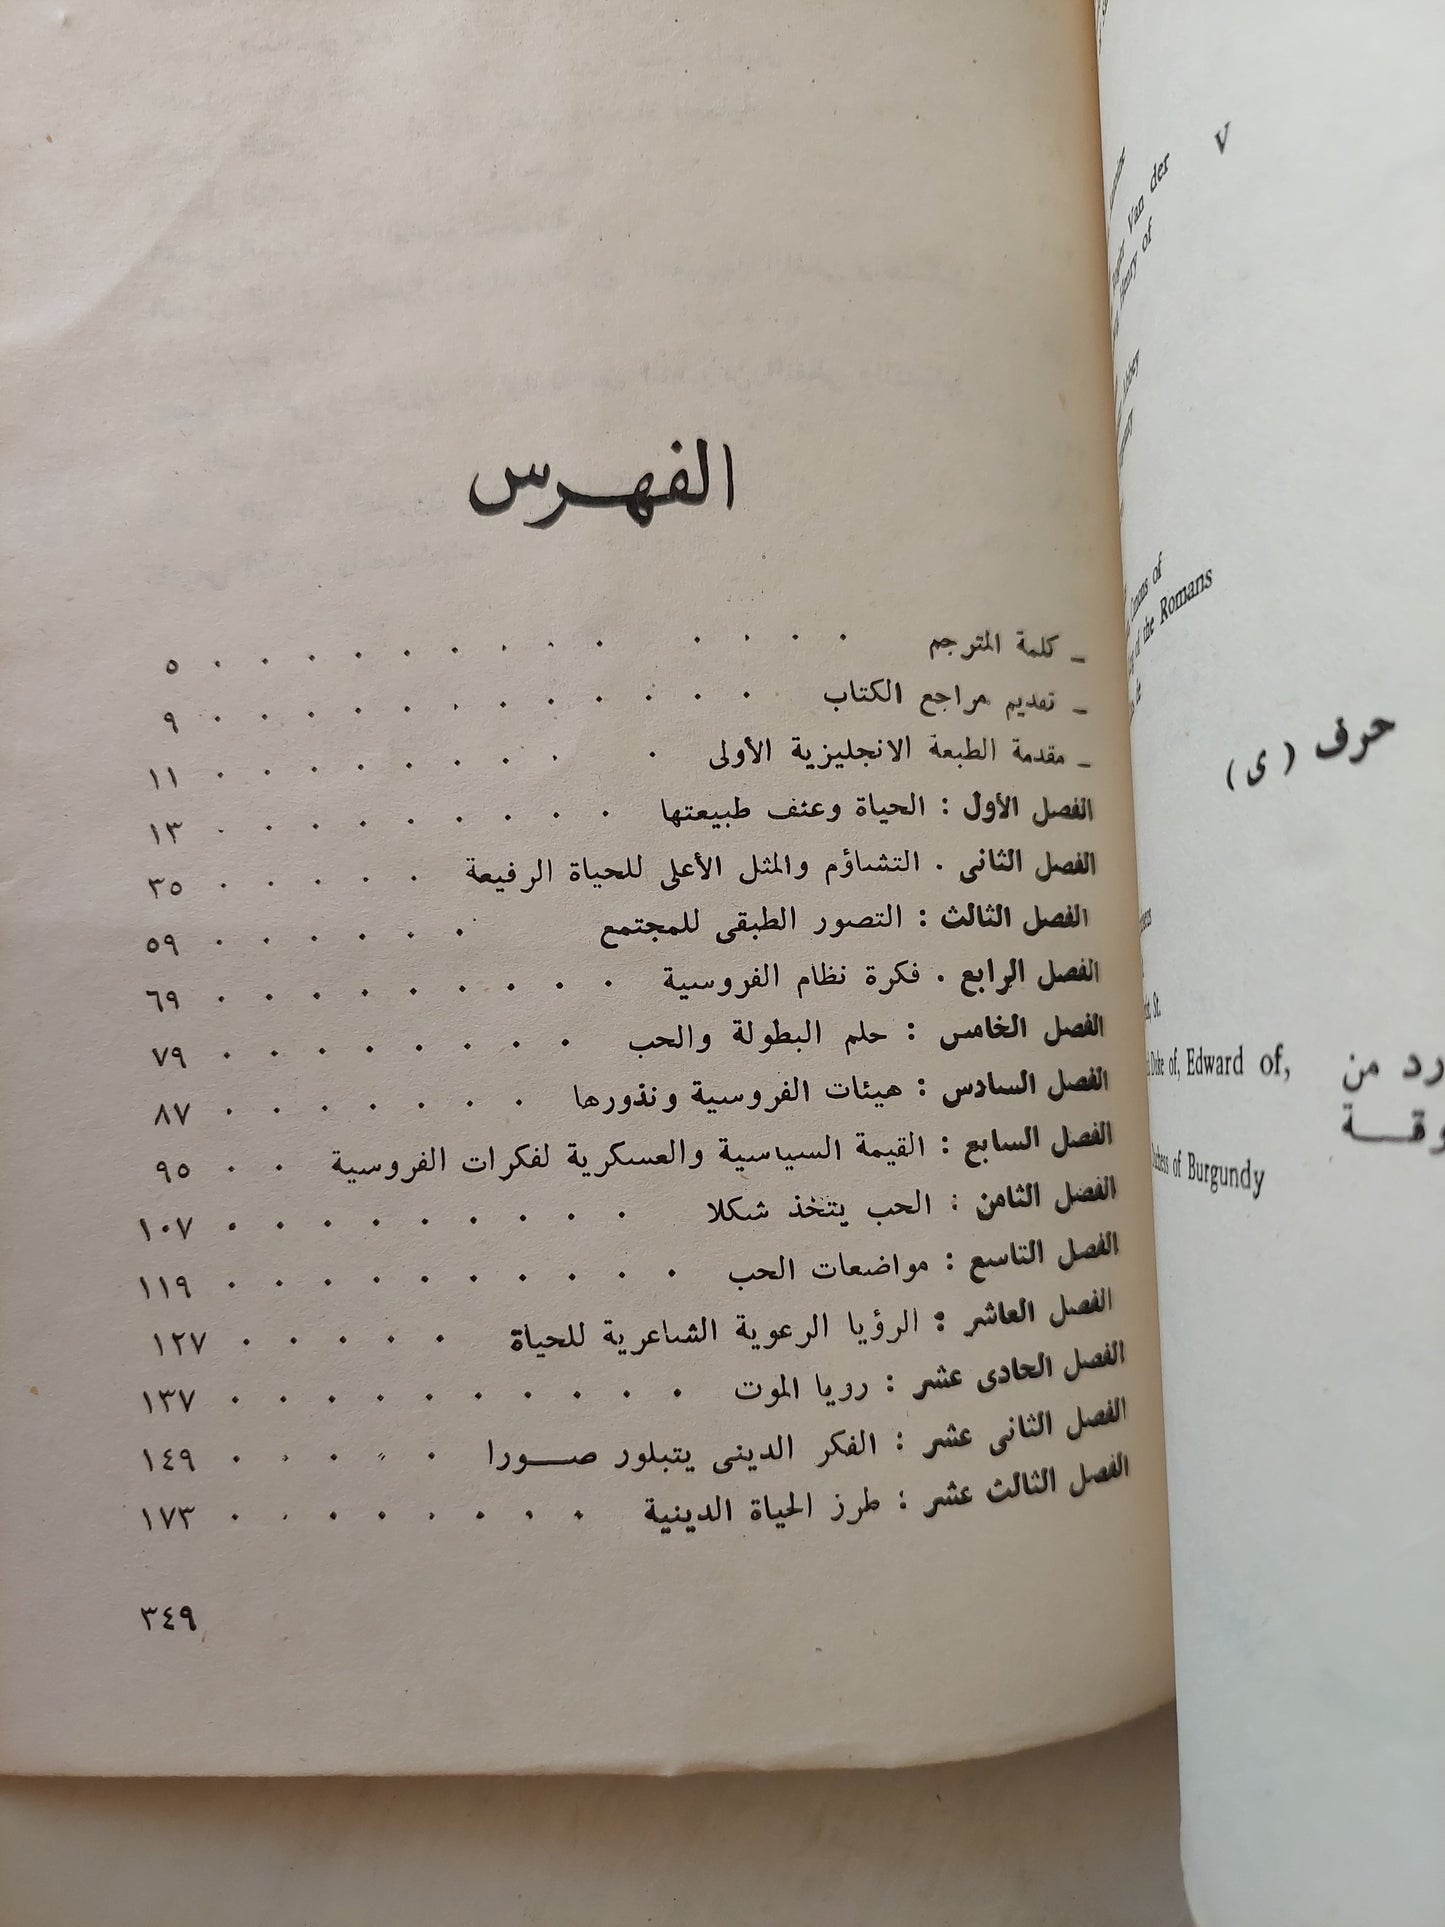 الفهرس
ـ كلمة المترجم . . . . . . . . . . . . . ٥
ـ تقديم مراجع الكتاب . . . . . . . . . . . . ٩
ـ مقدمة الطبعة الانجليزية الأولى . . . . . . . . . ١١
الفصل الأول : الحياة وعنف طبيعتها . . . . . . . . . ١٣
الفصل الثانى . التشاؤم والمثل الأعلى للحياة الرفيعة . . . . . ٣٥
الفصل الثالث : التصور الطبقى للمجتمع . . . . . . ٥٩
الفصل الرابع . فكرة نظام الفروسية . . . . . . . . . ٦٩
الفصل الخامس : حلم البطولة والحب . . . . . . . . ٧٩
الفصل السادس : هيئات الفروسية ونذورها . . . . . . . ٨٧
الفصل السابع : القيمة السياسية والعسكرية لفكرات الفروسية . . ٩٥
الفصل الثامن : الحب يتخذ شكلا . . . . . . . . . ١٠٧
الفصل التاسع : مواضعات الحب . . . . . . . . . . ١١٩
الفصل العاشر : الرؤيا الرعوية الشاعرية للحياة . . . . . ١٢٧
الفصل الحادى عشر : رويا الموت . . . . . . . . . . ١٣٧
الفصل الثانى عشر : الفكر الدينى يتبلور صـــورا . . . . . ١٤٩
الفصل الثالث عشر : طرز الحياة الدينية . . . . . . . . ١٧٣
٣٤٩
V
Van der
Henry of
Abbey
of
of the Romans
حرف ( ى )
St.
Duke of, Edward of,
رد من
وقـــة
of Burgundy